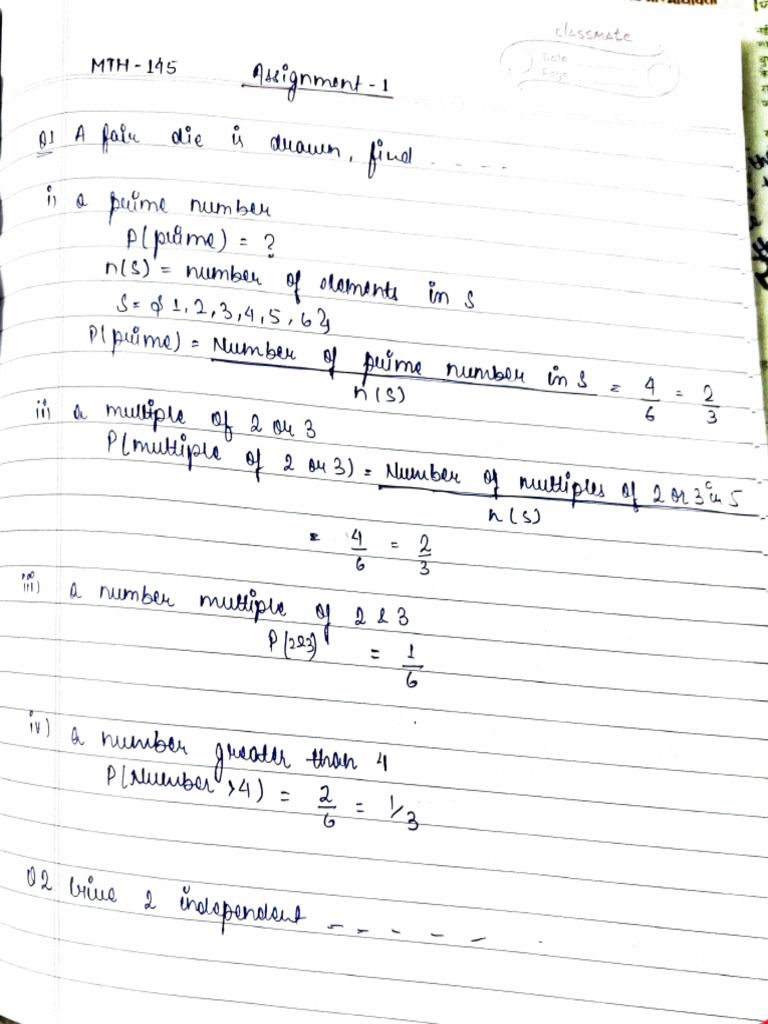 classmate
Date
Page
MTH-145 Assignment-1
Q1 A fair die is drawn, find ....
i) a prime number
P(prime) = ?
n(S) = number of elements in S
S = {1,2,3,4,5,6}
P(prime) = Number of prime number in S / n(S) = 4/6 = 2/3
ii) a multiple of 2 or 3
P(multiple of 2 or 3) = Number of multiples of 2 or 3 in S / n(S)
= 4/6 = 2/3
iii) a number multiple of 2 & 3
P(2&3) = 1/6
iv) a number greater than 4
P(Number >4) = 2/6 = 1/3
Q2 Give 2 independent - - - - -